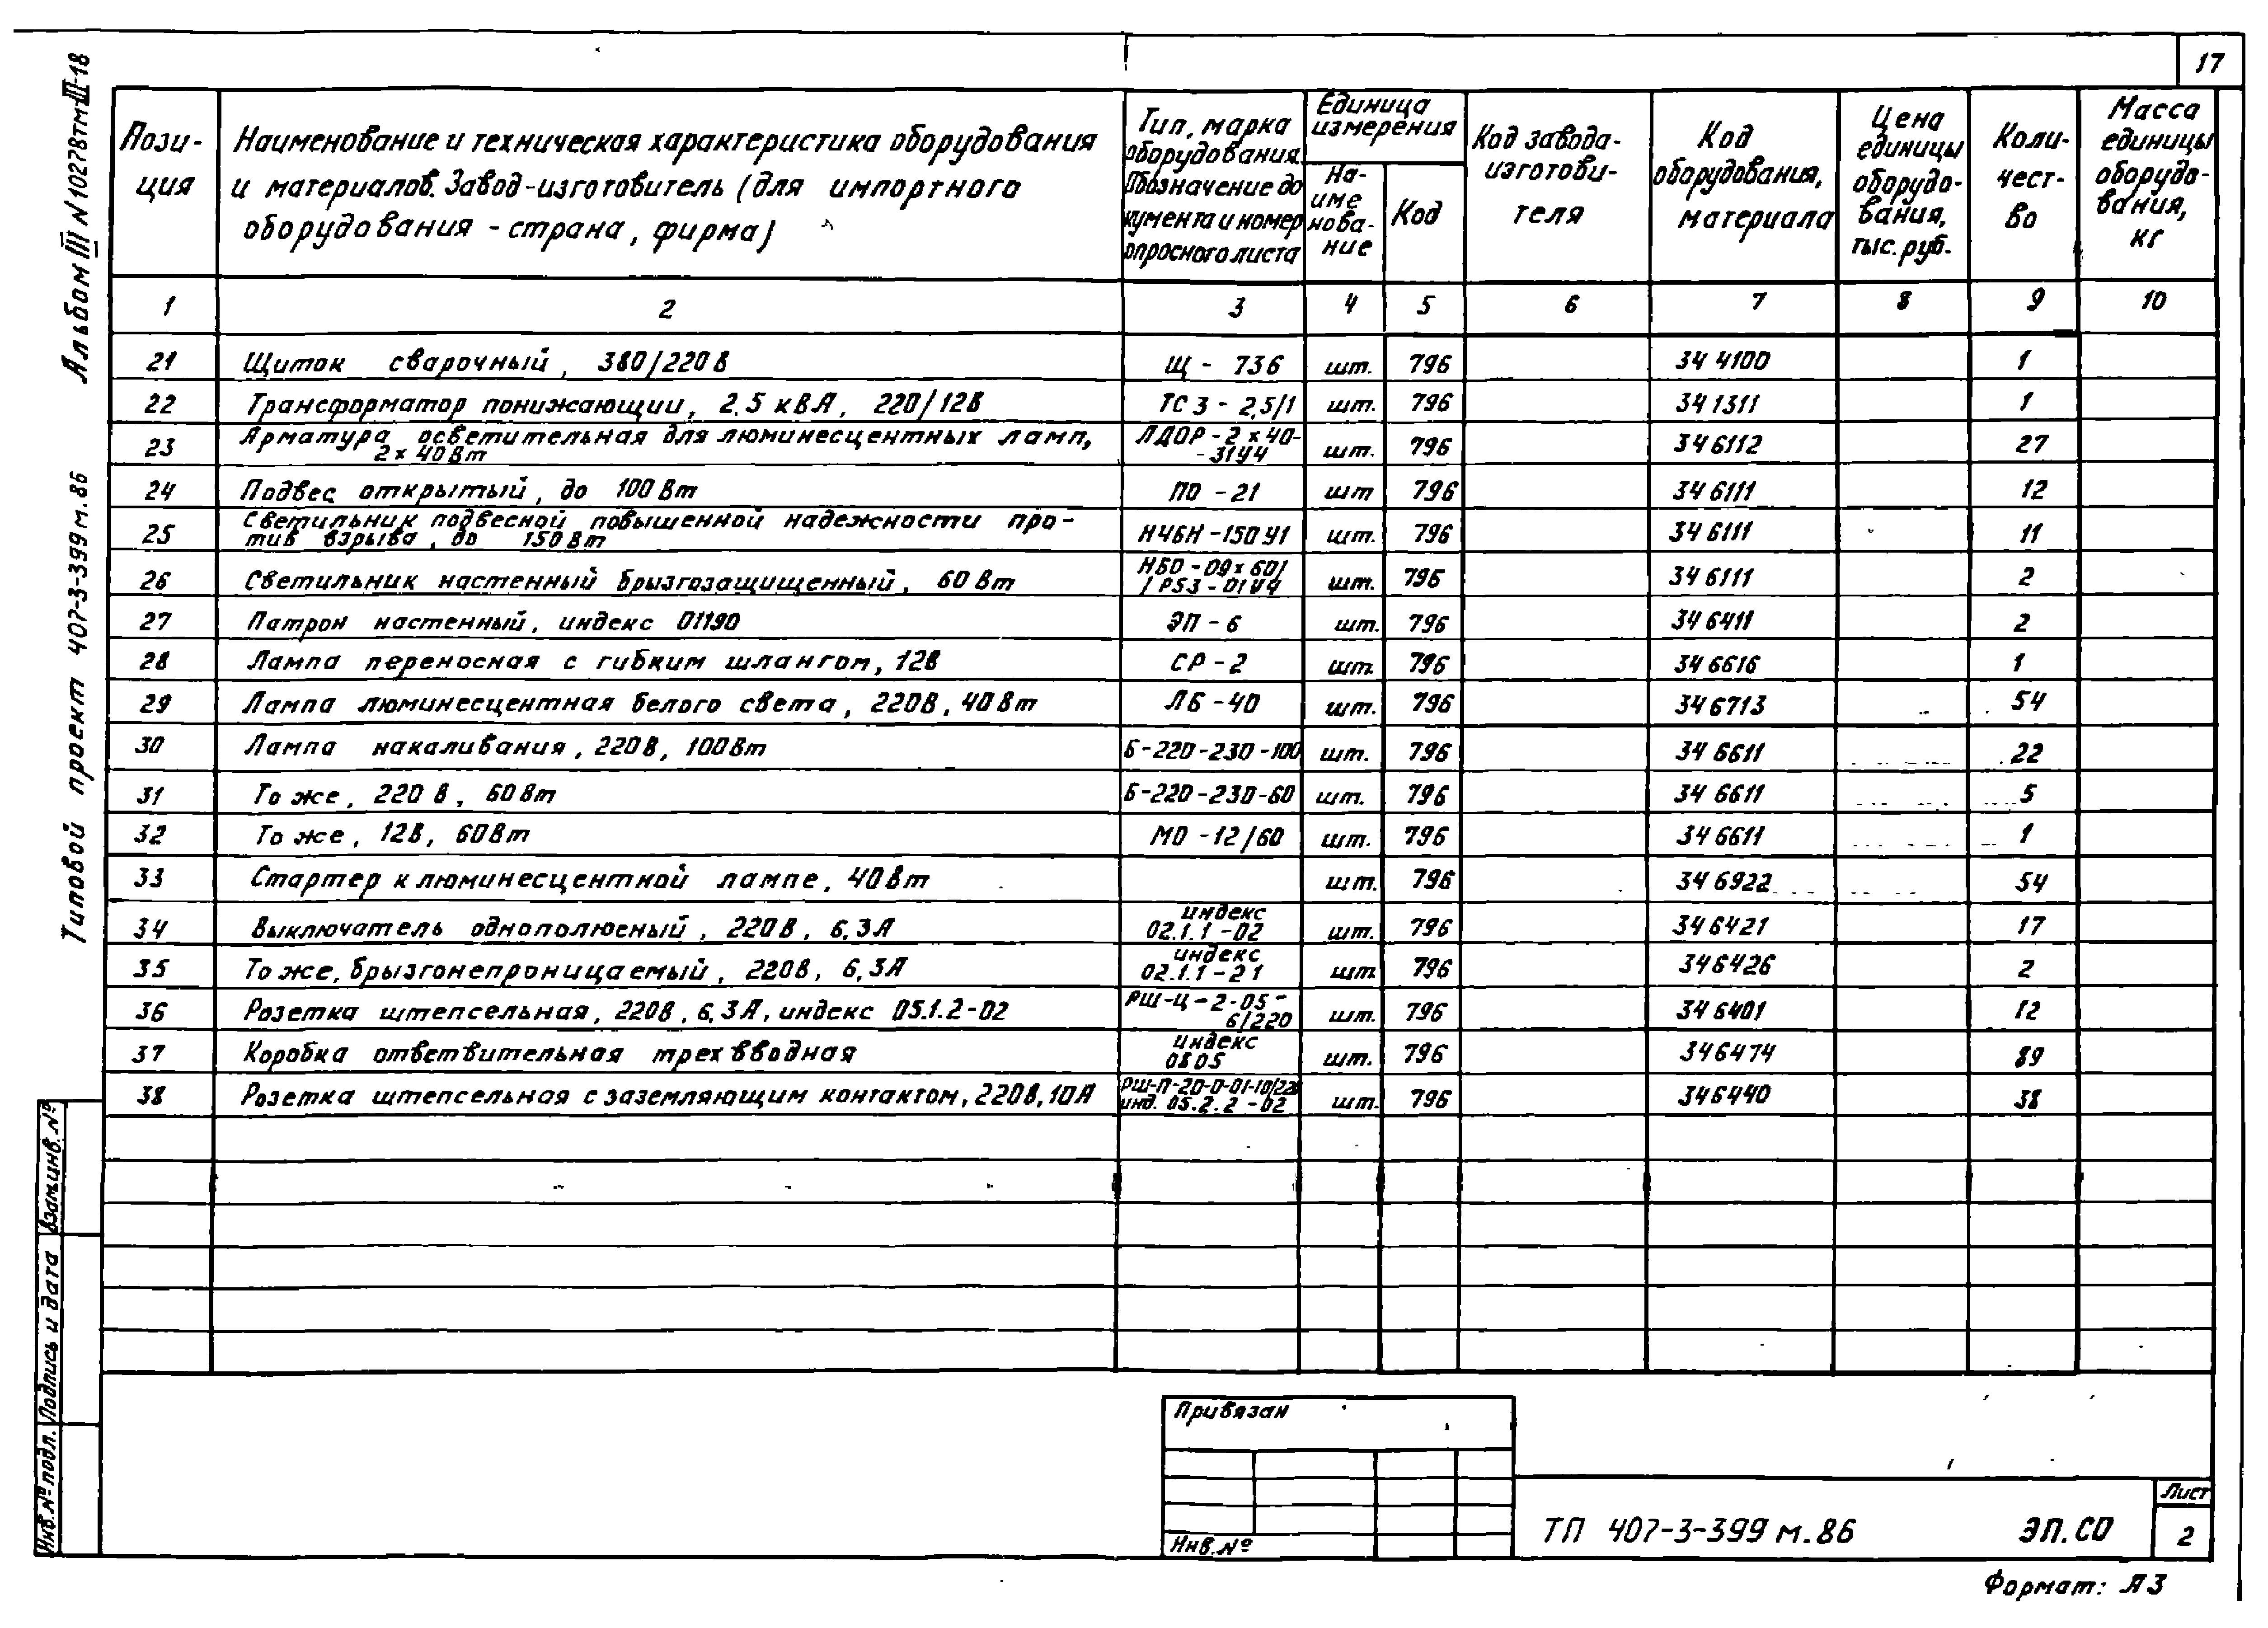 17
Альбом III N 10278тм-III-18
Типовой проект 407-3-399м.86
Пози-
ция
Наименование и техническая характеристика оборудования
и материалов. Завод-изготовитель (для импортного
оборудования - страна, фирма)
Тип, марка
оборудования.
Обозначение до
кумента и номер
опросного листа
Единица
измерения
На-
име
нова-
ние
Код
Код завода-
изготови-
теля
Код
оборудования,
материала
Цена
единицы
оборудо-
вания,
тыс. руб.
Коли-
чест-
во
Масса
единицы
оборудо-
вания,
кг
1 2 3 4 5 6 7 8 9 10
21 Щиток сварочный, 380/220В Щ - 736 шт. 796 34 4100 1
22 Трансформатор понижающии, 2,5 кВА, 220/12В ТС3 - 2,5/1 шт. 796 34 1311 1
23 Арматура осветительная для люминесцентных ламп,
2х 40Вт
ЛДОР - 2 х 40-
- 31У4
шт. 796 34 6112 27
24 Подвес открытый, до 100Вт ПО - 21 шт 796 34 6111 12
25 Светильник подвесной повышенной надежности про-
тив взрыва, до 150Вт
Н4БН -150У1 шт. 796 34 6111 11
26 Светильник настенный брызгозащищенный, 60Вт
НБО - 09х 60/
/ Р53 - 01У4
шт. 796 34 6111 2
27 Патрон настенный, индекс 01190 ЭП - 6 шт. 796 34 6411 2
28 Лампа переносная с гибким шлангом, 12В СР - 2 шт. 796 34 6616 1
29 Лампа люминесцентная белого света, 220В, 40Вт ЛБ - 40 шт. 796 34 6713 54
30 Лампа накаливания, 220В, 100Вт Б-220-230-100 шт. 796 34 6611 22
31 То же, 220В, 60Вт Б-220-230-60 шт. 796 34 6611 5
32 То же, 12В, 60Вт МО - 12/60 шт. 796 34 6611 1
33 Стартер к люминесцентной лампе, 40Вт шт. 796 34 6922 54
34 Выключатель однополюсный, 220В, 6,3А
индекс
02.1.1 -02
шт. 796 34 6421 17
35 То же, брызгонепроницаемый, 220В, 6,3А
индекс
02.1.1-21
шт 796 346426 2
36 Розетка штепсельная, 220В, 6,3А, индекс 05.1.2-02
РШ-Ц-2-05-
6/220
шт. 796 34 6401 12
37 Коробка ответвительная трехвводная
индекс
0805
шт. 796 346474 89
38 Розетка штепсельная с заземляющим контактом, 220В, 10А
РШ-П-20-0-01-10/220
инд. 05.2.2 -02
шт. 796 346440 38
Взам.инв.№
Подпись и дата
Инв.№ подл.
Привязан
Инв.№
ТП 407-3-399 м.86 ЭП.СО
Лист
2
Формат: А3